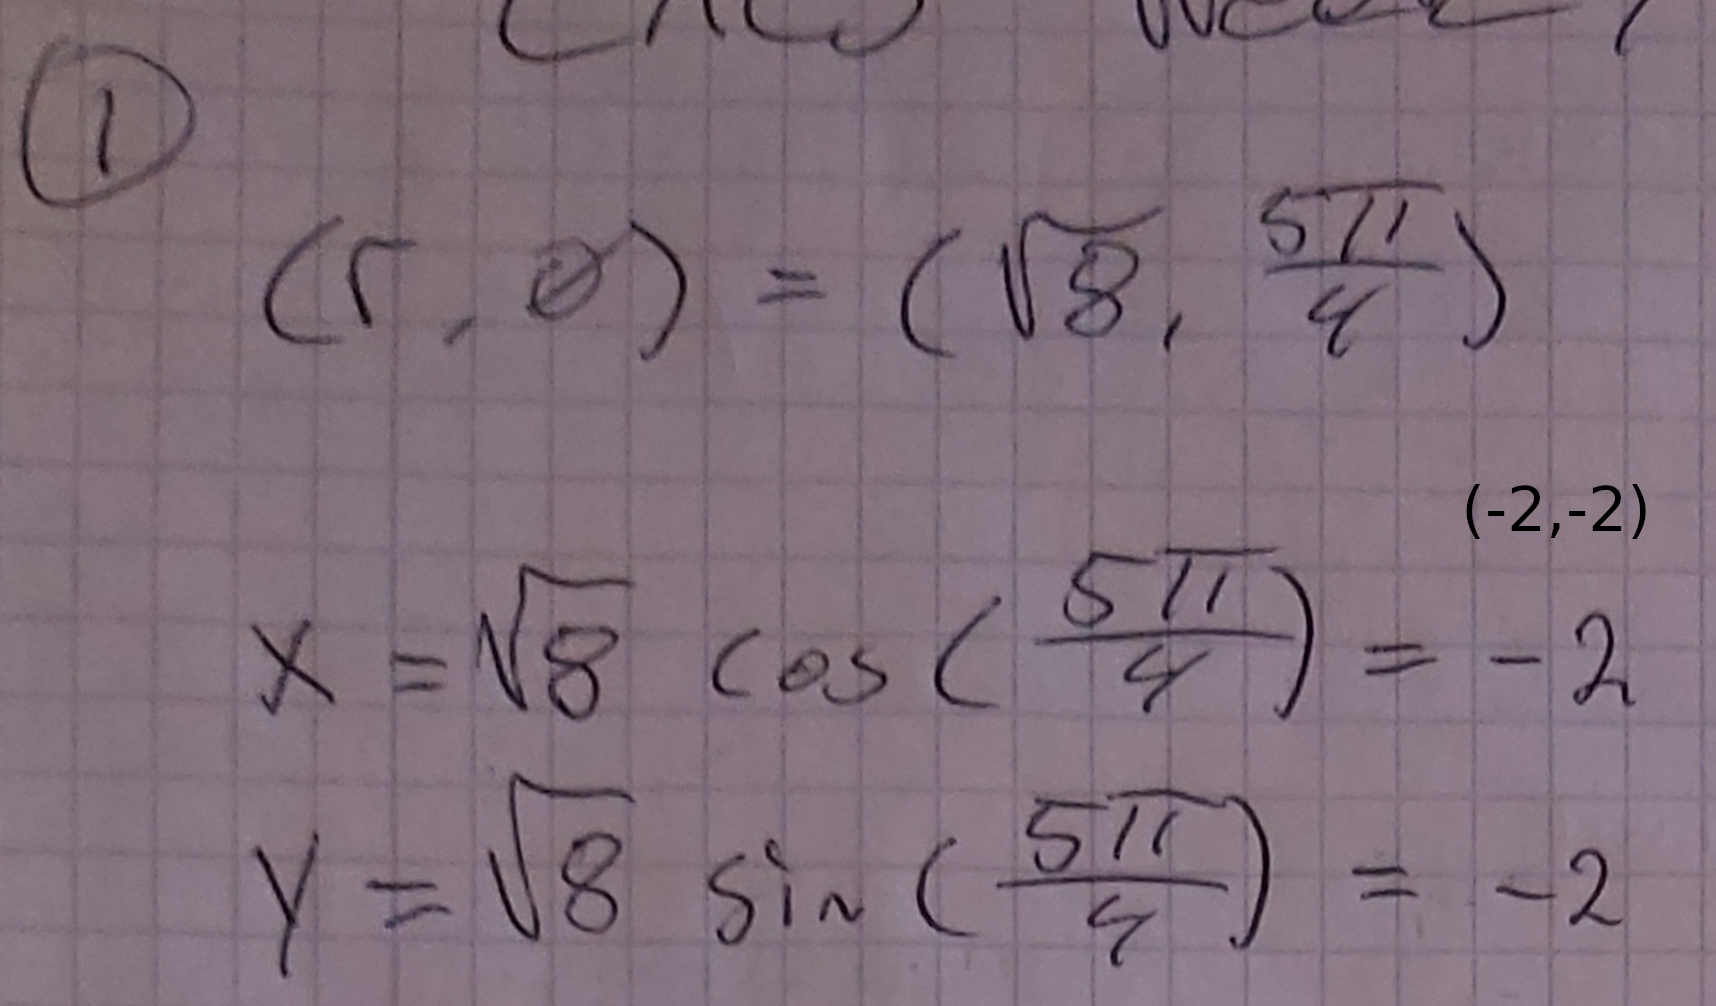 ①
(r, θ) = (√8, 5π/4)
(-2,-2)
x = √8 cos(5π/4) = -2
y = √8 sin(5π/4) = -2